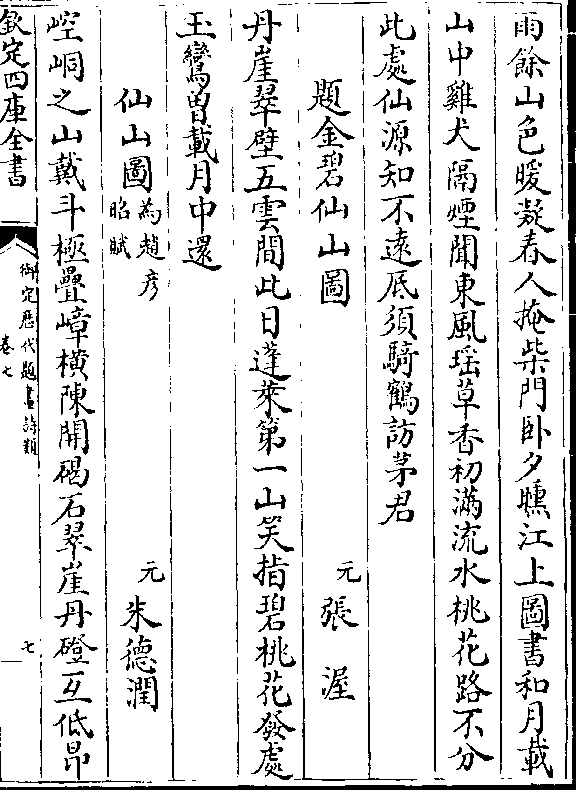 雨餘山色暖凝春人掩柴門卧夕曛江上圖書和月載
山中雞犬隔煙聞東風瑶草香初滿流水桃花路不分
此處仙源知不遠底須騎鶴訪茅君
題金碧仙山圖　元張渥
丹崖翠壁五雲間此日蓬萊第一山笑指碧桃花發處
玉鸞曽載月中還
仙山圖為趙彦昭賦　元朱德潤
崆峒之山戴斗極疊嶂橫陳開碣石翠崖丹磴互低昂
欽定四庫全書
御定歴代題畫詩類
卷七
七